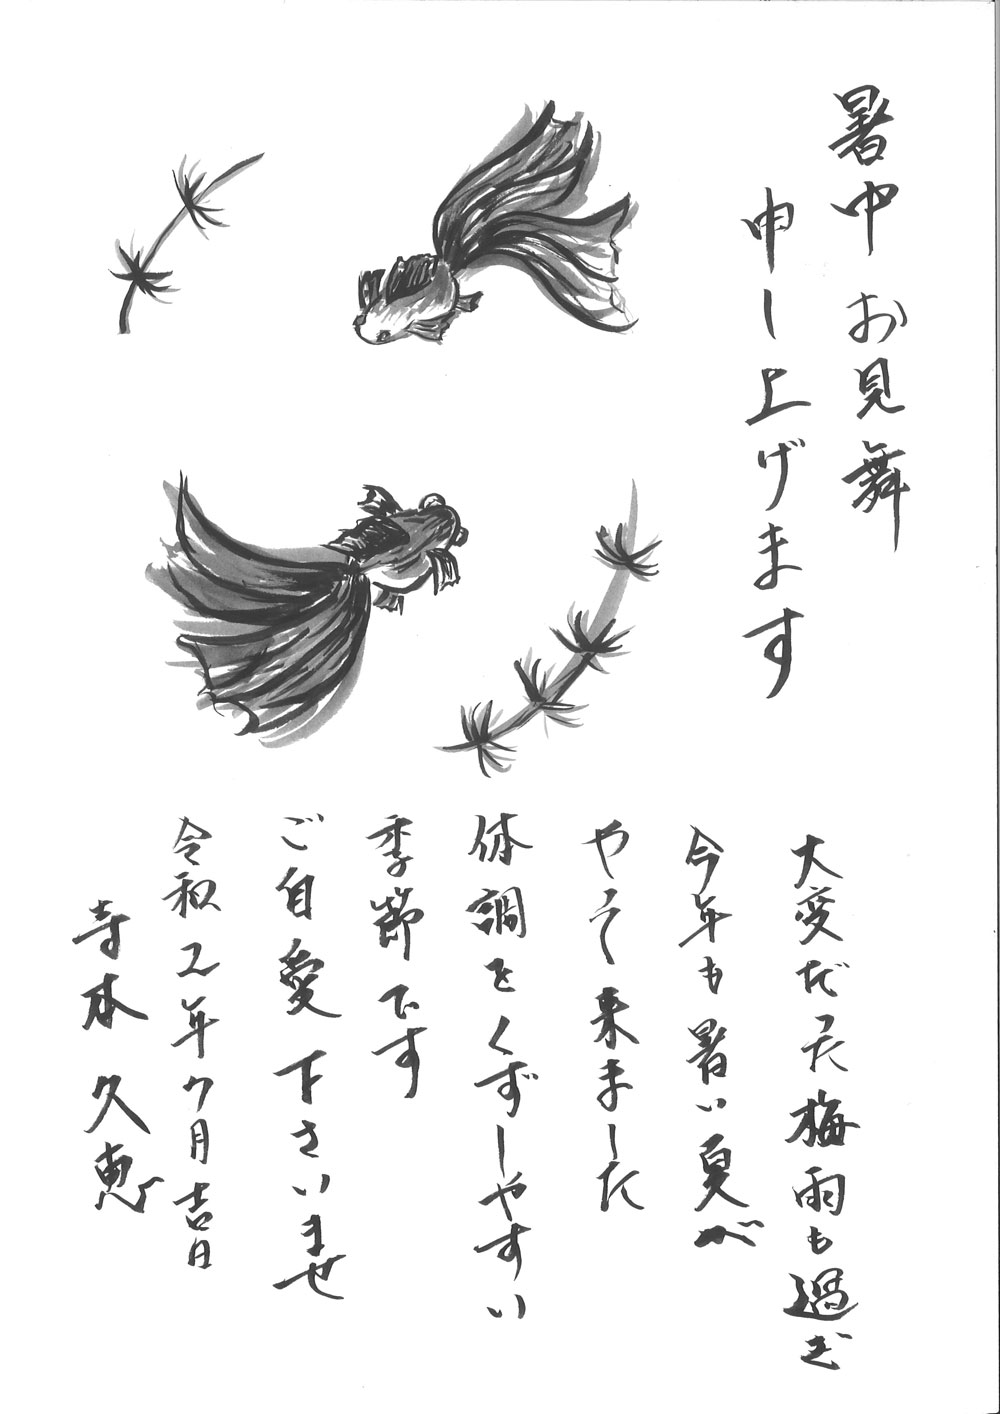 暑中お見舞
申し上げます
大変だった梅雨も過ぎ
今年も暑い夏が
やって来ました
体調をくずしやすい
季節です
ご自愛下さいませ
令和2年7月吉日
寺本久恵